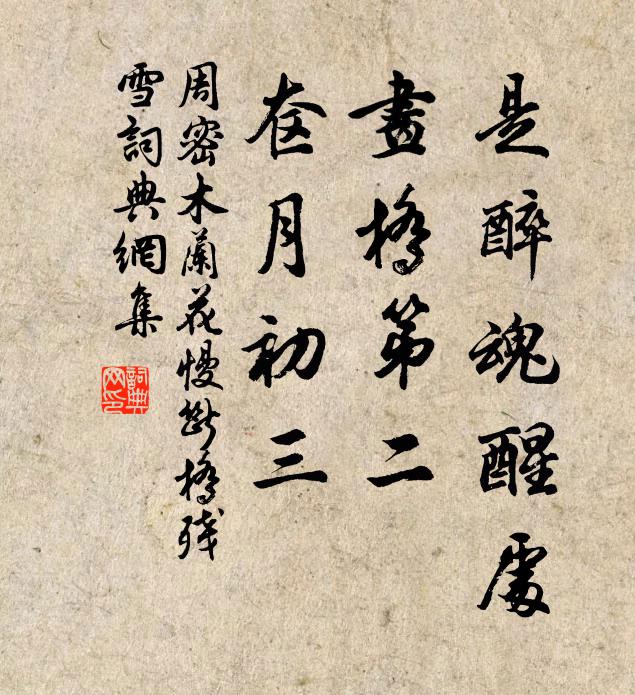 是醉魂醒處
畫橋第二
奁月初三
周密木蘭花慢斷橋残
雪詞典網集
詞典
网印